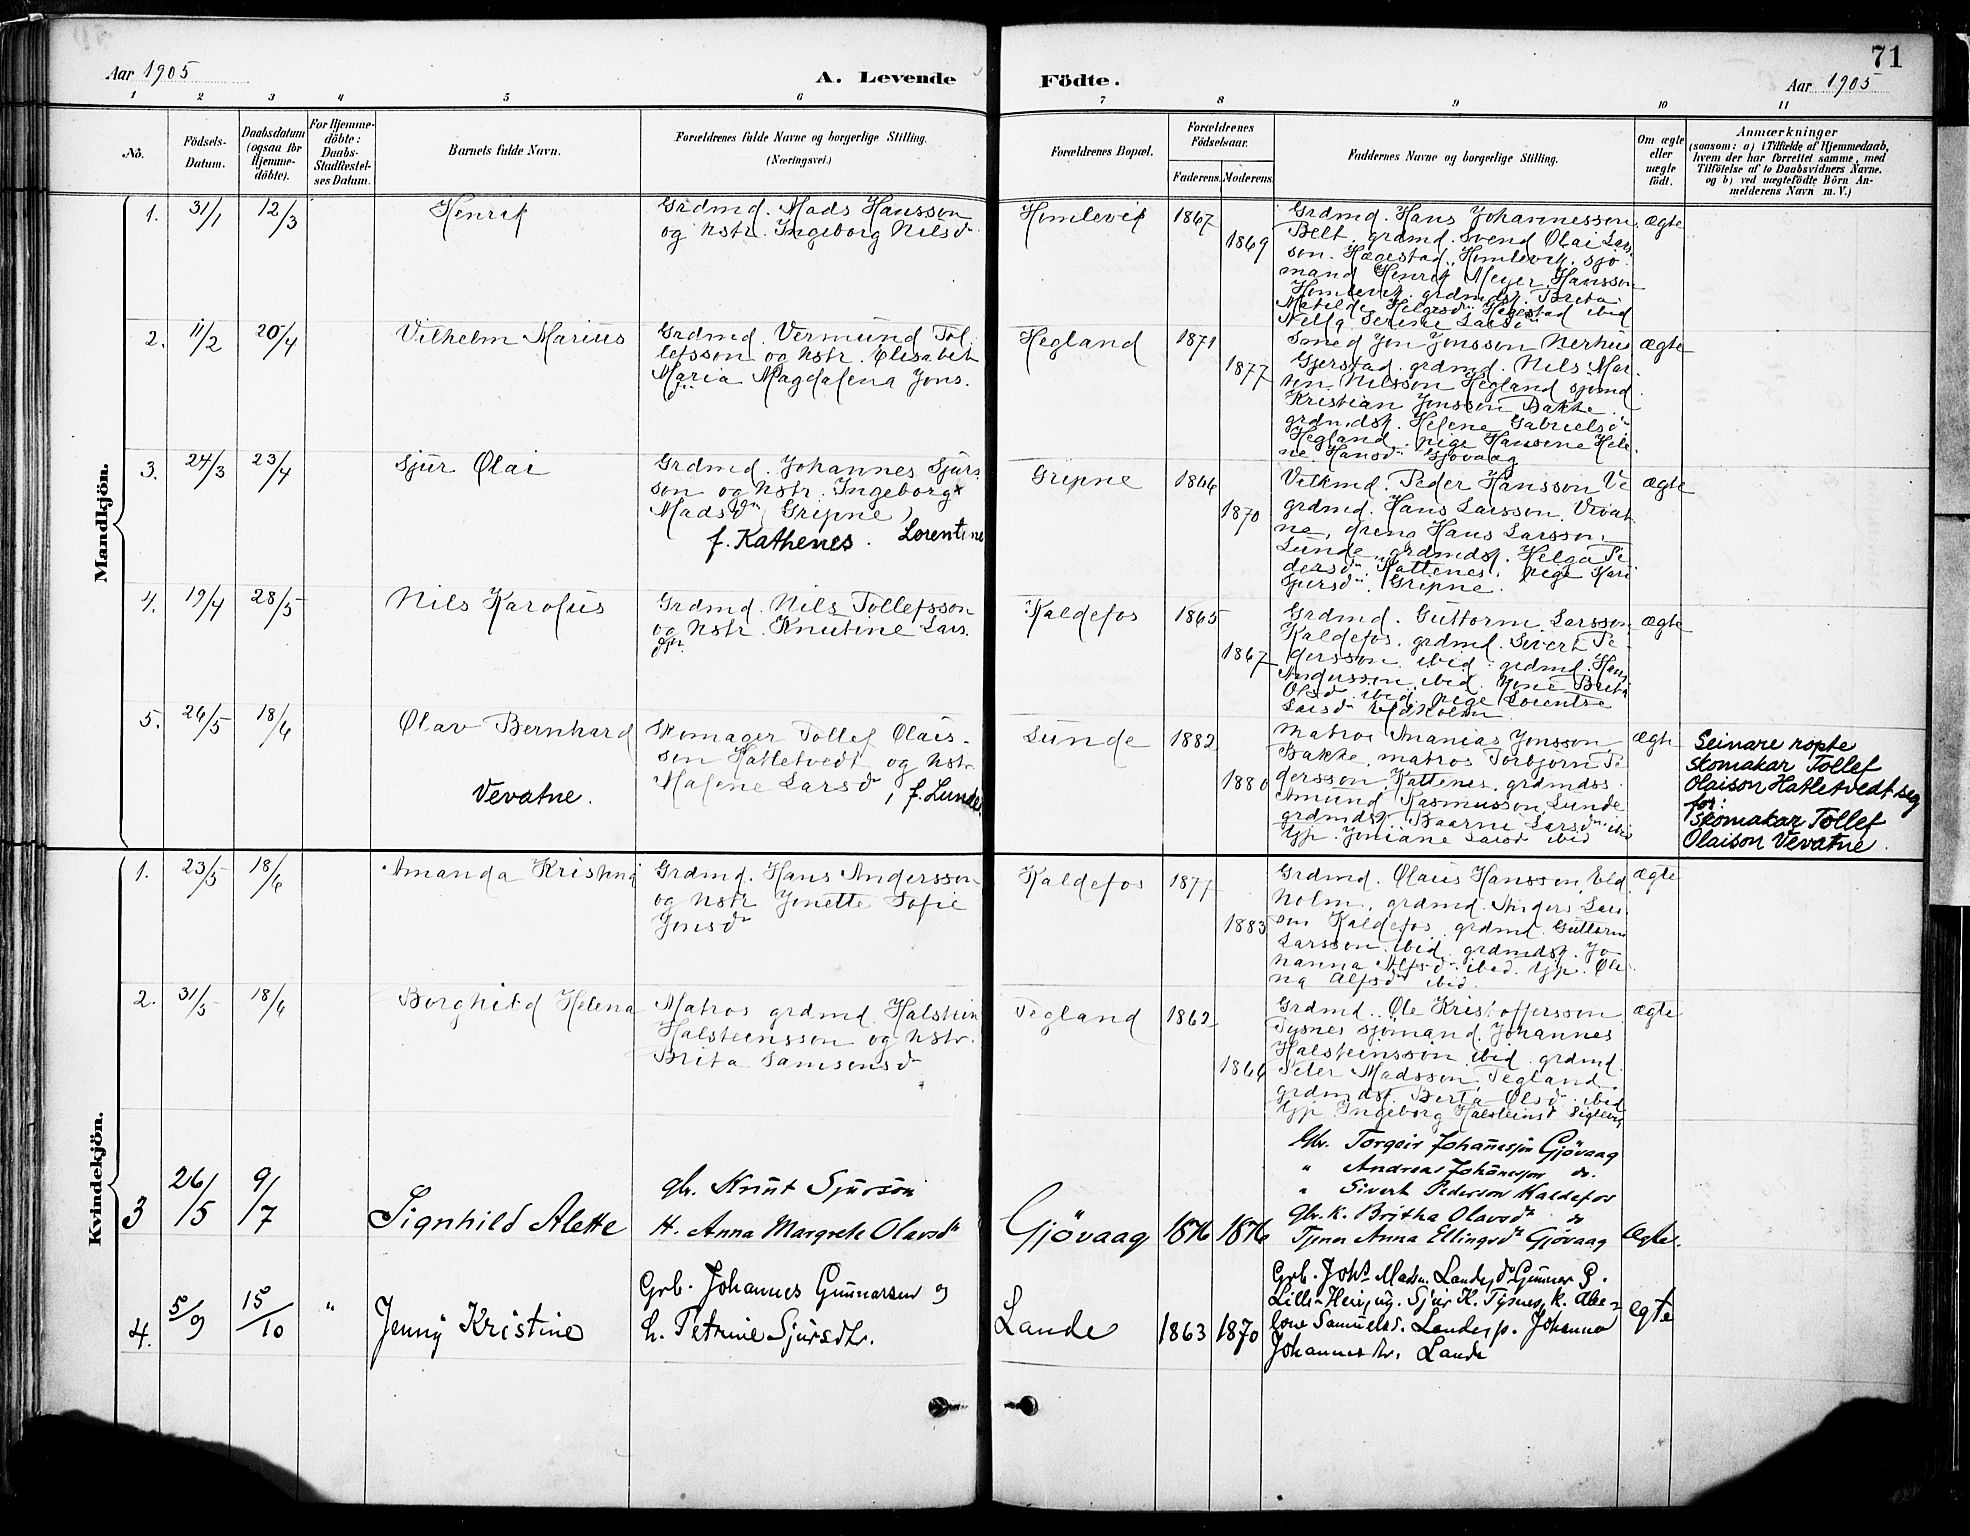 71
Aar 1905
A. Levende
Födte.
Aar 1905
1 2 3 4 5 6 7 8 9 10 11
Nô.
Födsels-
Datum.
Daabsdatum
(ogsaa for
Hjemme-
döbte).
For Hjemme-
döbte:
Daabs-
Stadfæstel-
ses Datum.
Barnets fulde Navn.
Forældrenes fulde Navne og borgerlige Stilling.
(Næringsvei.)
Forældrenes Bopæl.
Forældrenes
Födselsaar.
Faderens. Moderens.
Faddernes Navne og borgerlige Stilling.
Om ægte
eller
uægte
födt.
Anmærkninger
(saasom: a) i Tilfælde af Hjemmedaab,
hvem der har forrettet samme, med
Tilföielse af to Daabsvidners Navne.
og b) ved uægtefödte Börn An-
melderens Navn m. V.)
Mandkjön.
1. 31/1 12/3
Henrik
Grdmd. Mads Hansson
og hstr. Ingeborg Nilsdr
Homlevik 1867
1869
Grdmd. Hans Johannesson
Belt, grdmd. Svend Olai Lars
son. Hægestad, Homlevik, sjö
mand Henrik Meyer Hansson
Homlevik, grdmdsk. Brita
Matilde Helgesdr Hægestad ibid
Nella Serine Larsdr
ægte
2. 11/2 20/4
Vilhelm Marius
Grdmd. Vermund Tol
lefsson og hstr. Elisabet
Maria Magdalena Jons.
dr
Hegland 1871
1877
Smed Jon Jonsson Nerhus
Gjerstad, grdmd. Nils Mar.
tin Nilsson Hegland sjömd.
Kristian Jonsson Bakke.
grdmdsk. Helene Gabrielsdr
Hegland. pige Hansine Hele
ne Hansdr Gjövaag
ægte
3. 24/3 23/4
Sjur Olai
Grdmd. Johannes Sjurs
son og hstr. Ingeborg x
Madsdr, Gripne,
f. Kathenes. Lorentine
Gripne 1866
1870
Peder Hansson Ve
grdmd. Hans Larsson, Vevat
ne, dreng Hans Larsson,
Lunde, grdmdsk. Helga Pe
dersdr, Kattenes, pige Kari
Sjursdr. Gripne.
ægte
4. 19/4 28/5
Nils Karolus
Grdmd. Nils Tollefsson
og hstr. Knutine Lars.
dtr.
Kaldefos 1865
1867
Grdmd. Guttorm Larsson
Kaldefos, grdmd. Sivert Pe
dersson ibid. grdmd. Hans
Andersson ibid. kone Brita
Olsdr ibid. pige Lorentse
Larsdr Eldholm
ægte
5. 26/5 18/6
Olav Bernhard
Vevatne.
Skomager Tollef Olais-
son Hatletvedt og hstr.
Malene Larsdr, f. Lunde
Lunde 1882
1880
Matros Ananias Jonsson,
Bakke, matros Torbjörn Pe
dersson, Kattenes, grdmdss.
Amund Rasmusson Lunde
grdmdsk. Baarni Larsdr ibid
tjp. Joniane Larsdr ibid
ægte
Seinare ropte
skomakar Tollef
Olaison Hatletvedt seg
for:
Skomakar Tollef
Olaison Vevatne.
Kvindekjön.
1. 23/5 18/6
Amanda Kristina
Grdmd. Hans Andersson
og hstr Jonette Sofie
Jonsdr
Kaldefos 1877
1883
Grdmd. Olaus Hansson Eld
holm, grdmd. Anders Lars
son Kaldefos, grdmd. Guttorm
Larsson ibid, grdmdsk. Jo
hanna Alfsdr ibid. tjp. Ole
na Alfsdr ibid.
ægte
2. 31/5 18/6
Borghild Helena
Matros grdmd. Halstein
Halsteinsson og hstr.
Brita Samsonsdr
Tegland 1862
1866
Grdmd. Ole Kristoffersson
Tysnes sjömand. Johannes
Halsteinsson ibid. grdmd.
Peter Madsson, Tegland.
grdmdsk. Berta Olsdr ibid
tjp Ingeborg Halsteinsdr
ægte
3 26/5 9/7
Signhild Alette
gbr. Knut Sjurson
H. Anna Margrete Olavsdr
Gjövaag 1876 1876
Gbr. Torgeir Johanesson Gjövaag
" Andreas Johanesson do.
" Sivert Pederson Kaldefos
Gbr. k. Britha Olavsdr do
Tjener Anna Ellingsdr Gjövaag
Ægte.
4. 5/9 15/10 "
Jenny Kristine
Grb. Johannes Gunnarsen og
h. Petrine Sjursdtr.
Lande 1863 1870
Grb. Johs Madsn. Lande, do Gunnar G.
Sjur K. Tysnes, k. Abe-
lone Samuelsd. Lande, p. Johanna
Johannesdtr. Lande
egte